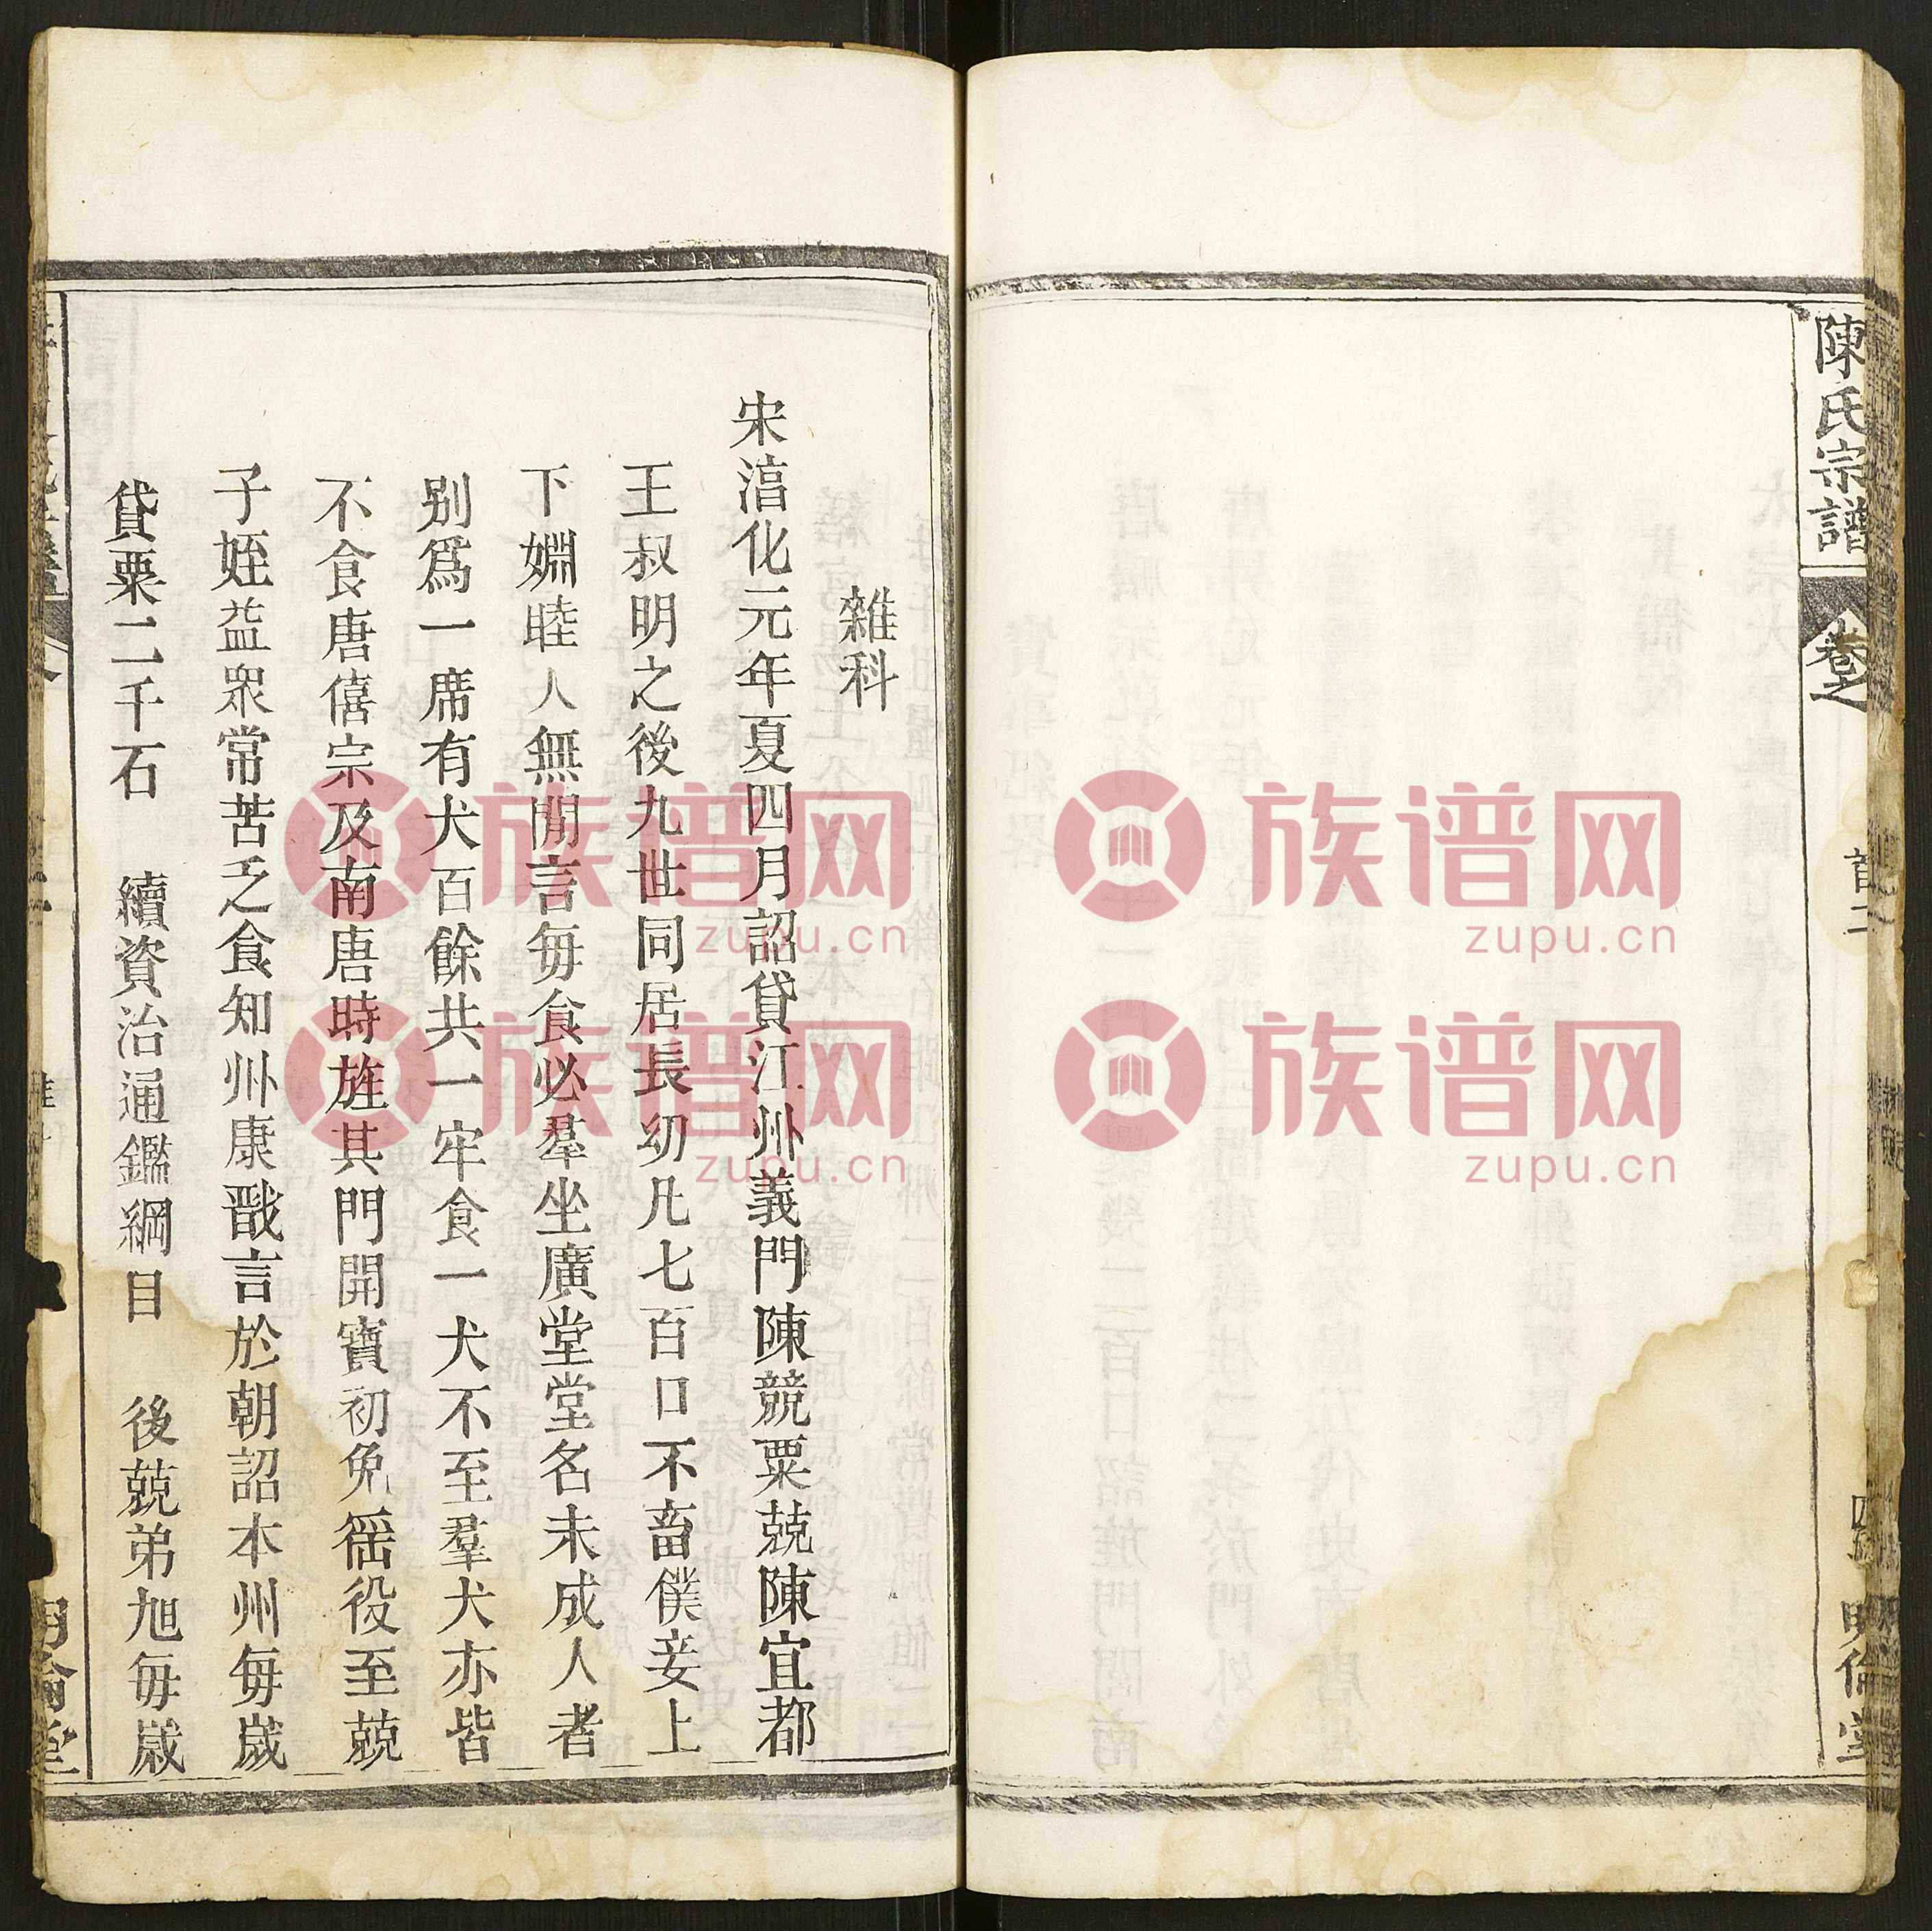 陳氏宗譜
卷之
首二
明倫堂
雜科
宋淯化元年夏四月詔貸江州義門陳競粟兢陳宜都
王叔明之後九世同居長幼凡七百口不畜僕妾上
下婣睦人無閒言每食必羣坐廣堂堂名未成人者
别爲一席有犬百餘共一牢食一犬不至羣犬亦皆
不食唐僖宗及南唐時旌其門開寶初免徭役至兢
子姪益衆常苦乏食知州康戩言於朝詔本州每歲
貸粟二千石 續資治通鑑綱目 後兢弟旭每歲
族谱网
zupu.cn
族谱网
zupu.cn
族谱网
zupu.cn
族谱网
zupu.cn